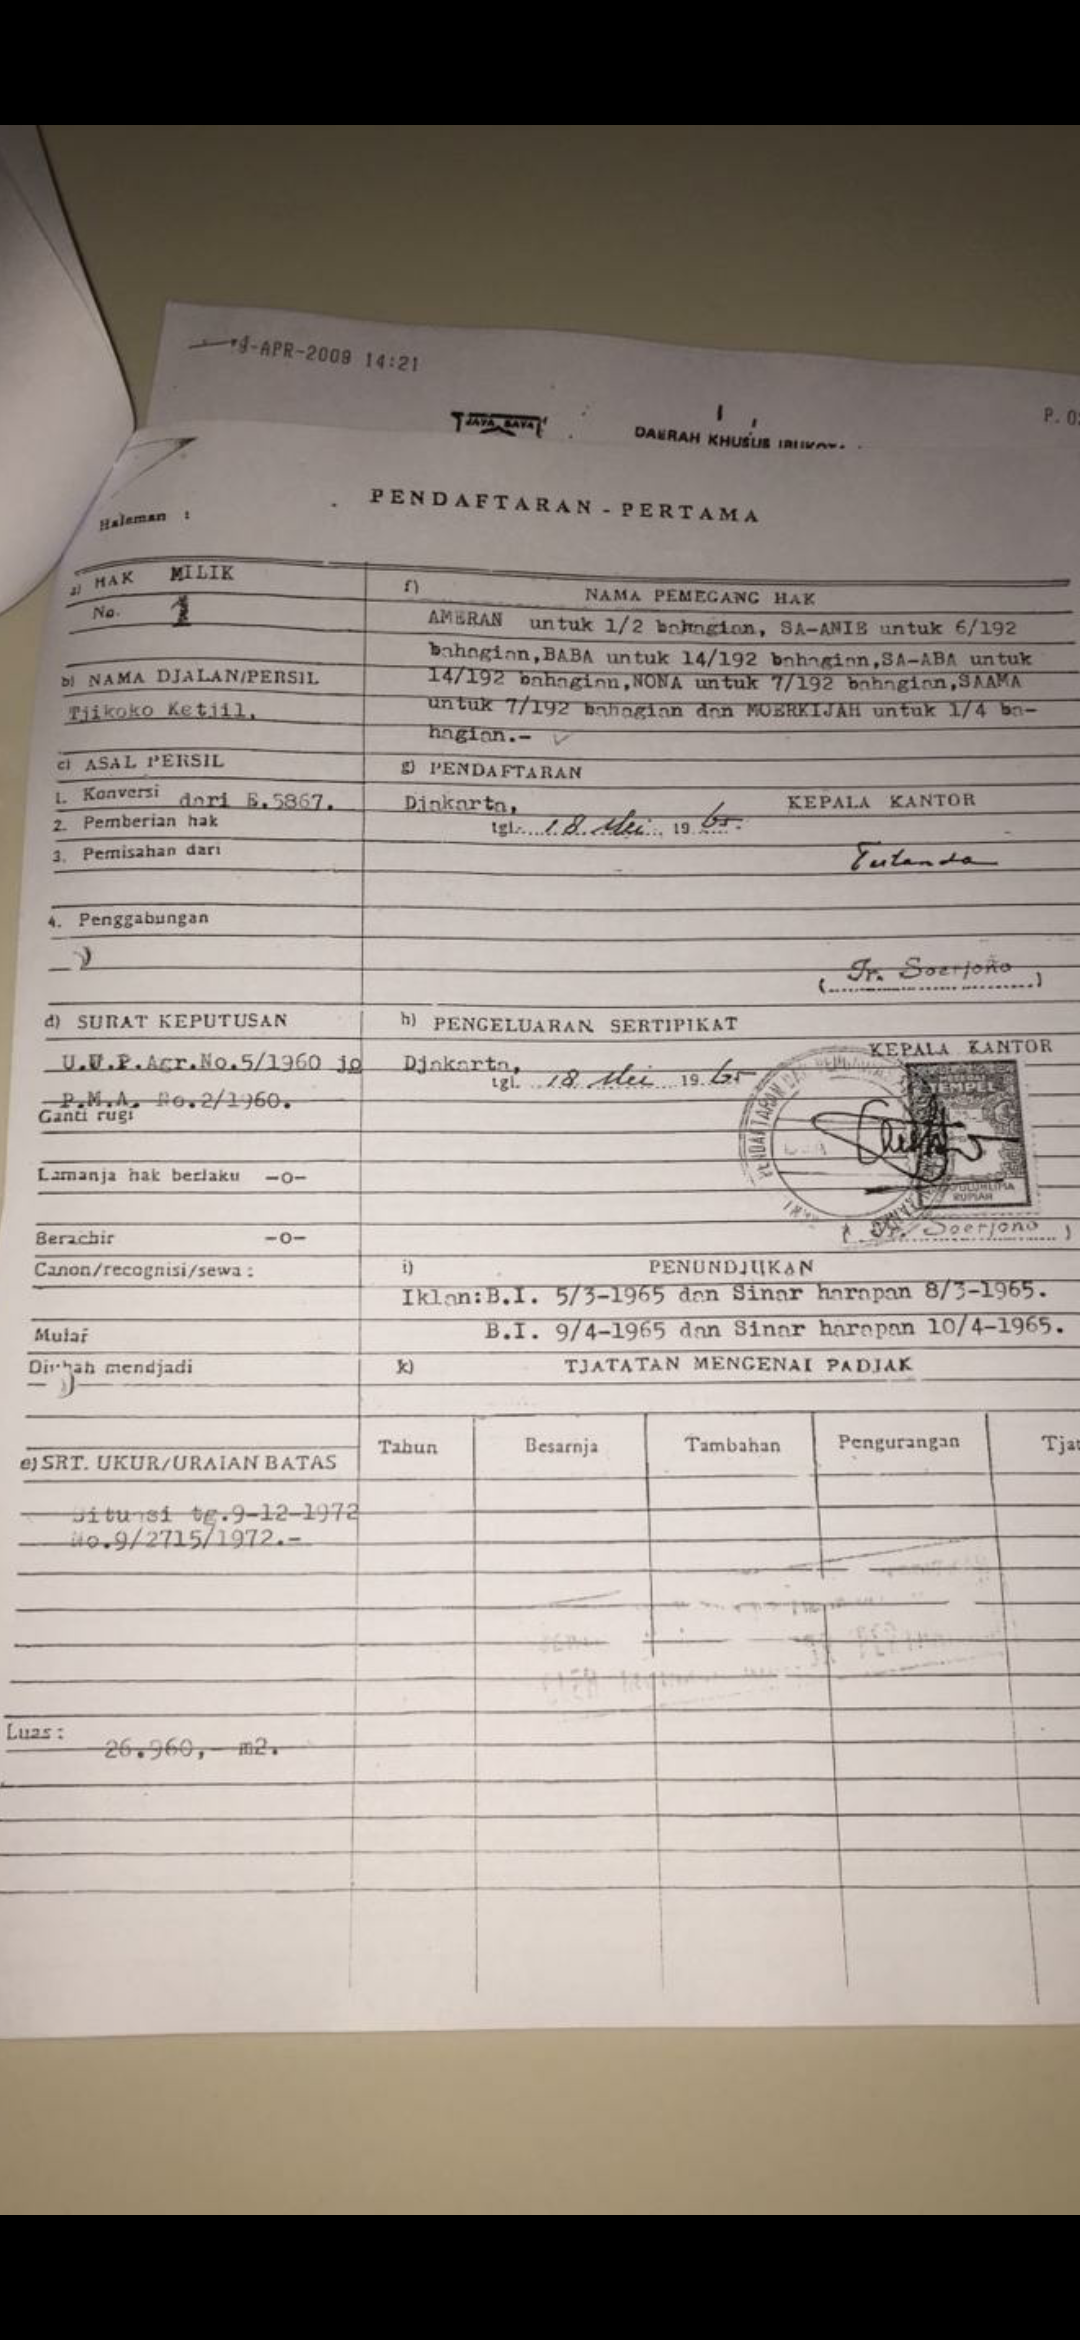 -APR-2009 14:21
P. 0
JAYA RAYA
DAERAH KHUSUS
PENDAFTARAN - PERTAMA
Halaman :
a) HAK MILIK
No.
b) NAMA DJALAN/PERSIL
Tjikoko Ketjil.
c) ASAL PERSIL
1. Konversi dari E.5867.
2. Pemberian hak
3. Pemisahan dari
4. Penggabungan
d) SURAT KEPUTUSAN
U.U.P.Agr.No.5/1960 jo
P.M.A. No.2/1960.
Ganti rugi
Lamanja hak berlaku -o-
Berachir -o-
Canon/recognisi/sewa :
Mulai
Diubah mendjadi
e) SRT. UKUR/URAIAN BATAS
Situasi tg.9-12-1972
No.9/2715/1972.-
Luas :
26.960,- m2.
f) NAMA PEMEGANG HAK
AMERAN untuk 1/2 bahagian, SA-ANIE untuk 6/192
bahagian,BABA untuk 14/192 bahagian,SA-ABA untuk
14/192 bahagian,NONA untuk 7/192 bahagian,SAAMA
untuk 7/192 bahagian dan MOERKIJAH untuk 1/4 ba-
hagian.-
g) PENDAFTARAN
Djakarta, KEPALA KANTOR
tgl. 18 Mei 19 65.
Tertanda
( Ir. Soerjono )
h) PENGELUARAN SERTIPIKAT
KEPALA KANTOR
Djakarta,
tgl. 18 Mei 19 65
TEMPEL
RUPIAH
( Ir. Soerjono )
i) PENUNDJUKAN
Iklan:B.I. 5/3-1965 dan Sinar harapan 8/3-1965.
B.I. 9/4-1965 dan Sinar harapan 10/4-1965.
k) TJATATAN MENGENAI PADJAK
Tahun Besarnja Tambahan Pengurangan Tjat